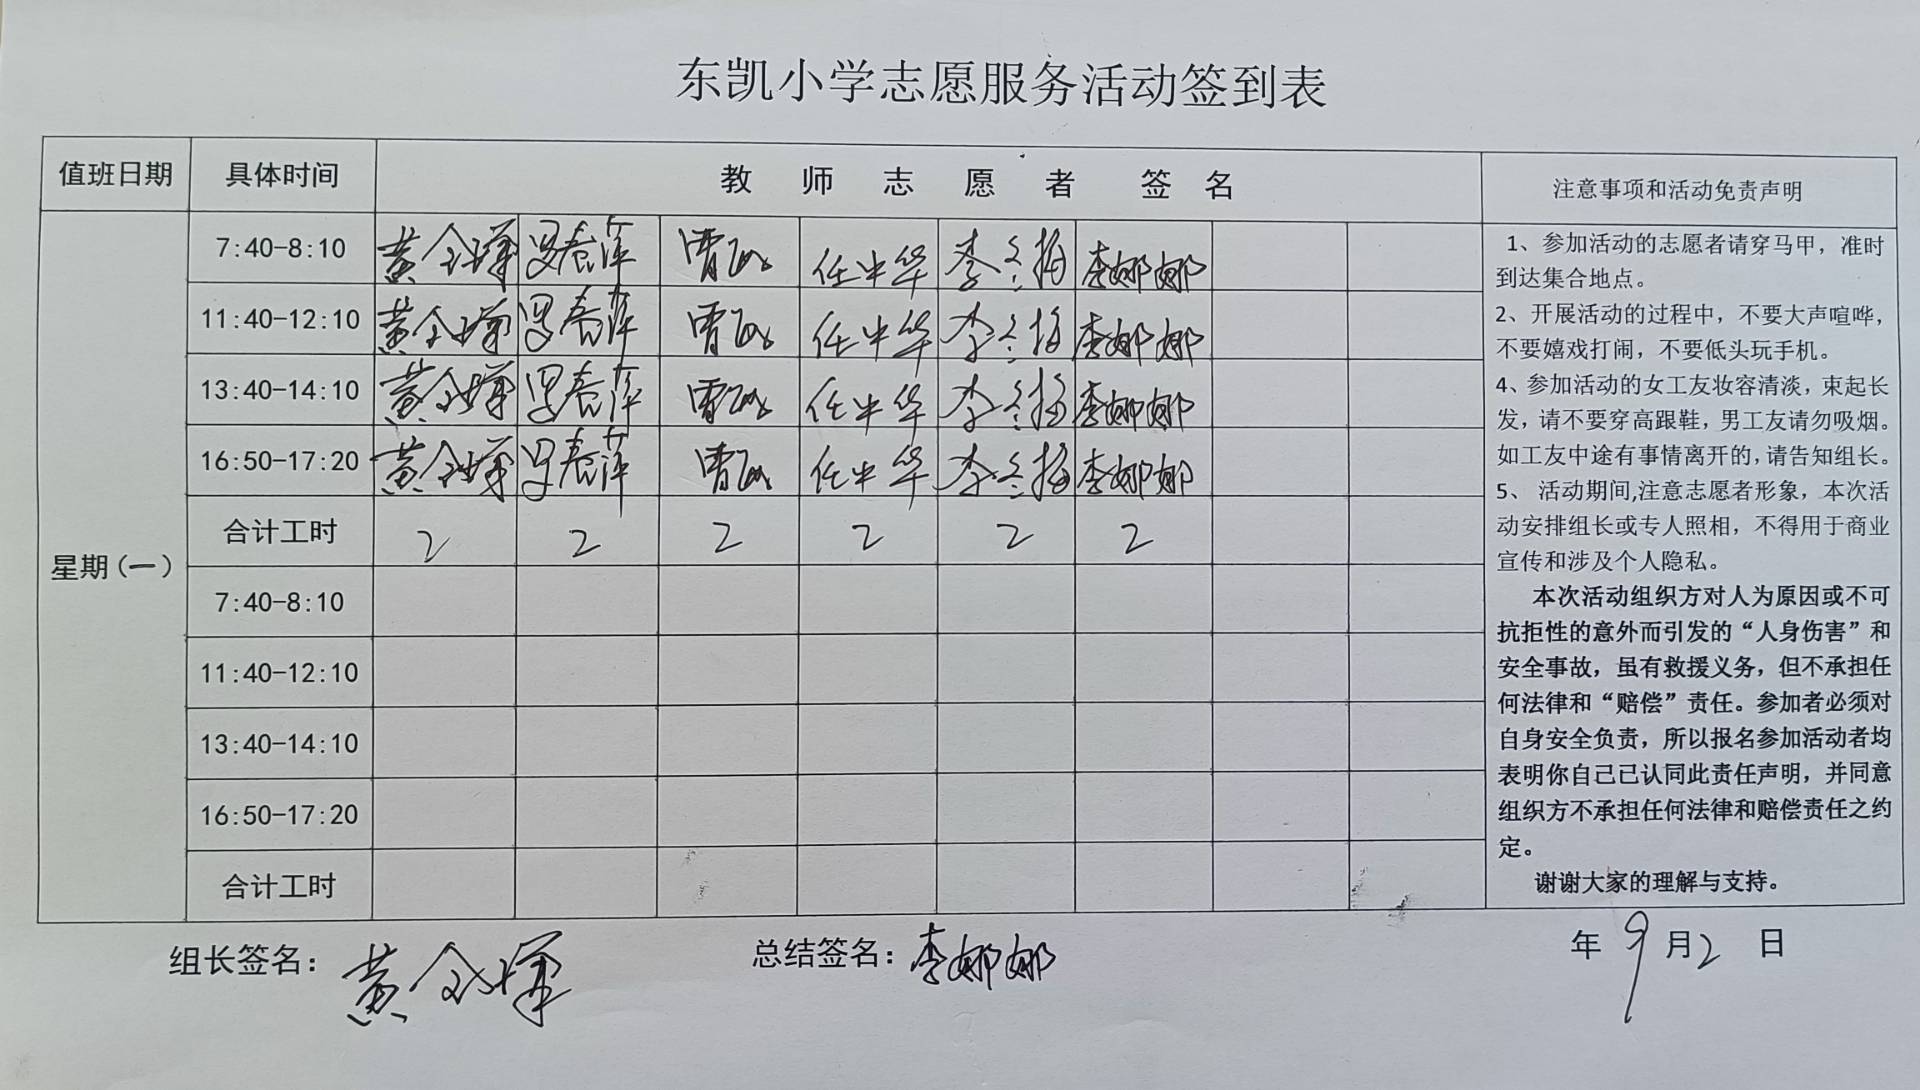 东凯小学志愿服务活动签到表
值班日期 具体时间 教师志愿者签名 注意事项和活动免责声明
星期(一)
7:40-8:10 黄 罗春萍 曹 任中华 李冬梅 李娜娜
11:40-12:10 黄 罗春萍 曹 任中华 李冬梅 李娜娜
13:40-14:10 黄 罗春萍 曹 任中华 李冬梅 李娜娜
16:50-17:20 黄 罗春萍 曹 任中华 李冬梅 李娜娜
合计工时 2 2 2 2 2 2
7:40-8:10
11:40-12:10
13:40-14:10
16:50-17:20
合计工时
1、参加活动的志愿者请穿马甲，准时
到达集合地点。
2、开展活动的过程中，不要大声喧哗，
不要嬉戏打闹，不要低头玩手机。
4、参加活动的女工友妆容清淡，束起长
发，请不要穿高跟鞋，男工友请勿吸烟。
如工友中途有事情离开的，请告知组长。
5、 活动期间,注意志愿者形象，本次活
动安排组长或专人照相，不得用于商业
宣传和涉及个人隐私。
本次活动组织方对人为原因或不可
抗拒性的意外而引发的“人身伤害”和
安全事故，虽有救援义务，但不承担任
何法律和“赔偿”责任。参加者必须对
自身安全负责，所以报名参加活动者均
表明你自己已认同此责任声明，并同意
组织方不承担任何法律和赔偿责任之约
定。
谢谢大家的理解与支持。
组长签名：黄 总结签名：李娜娜 年9月2日